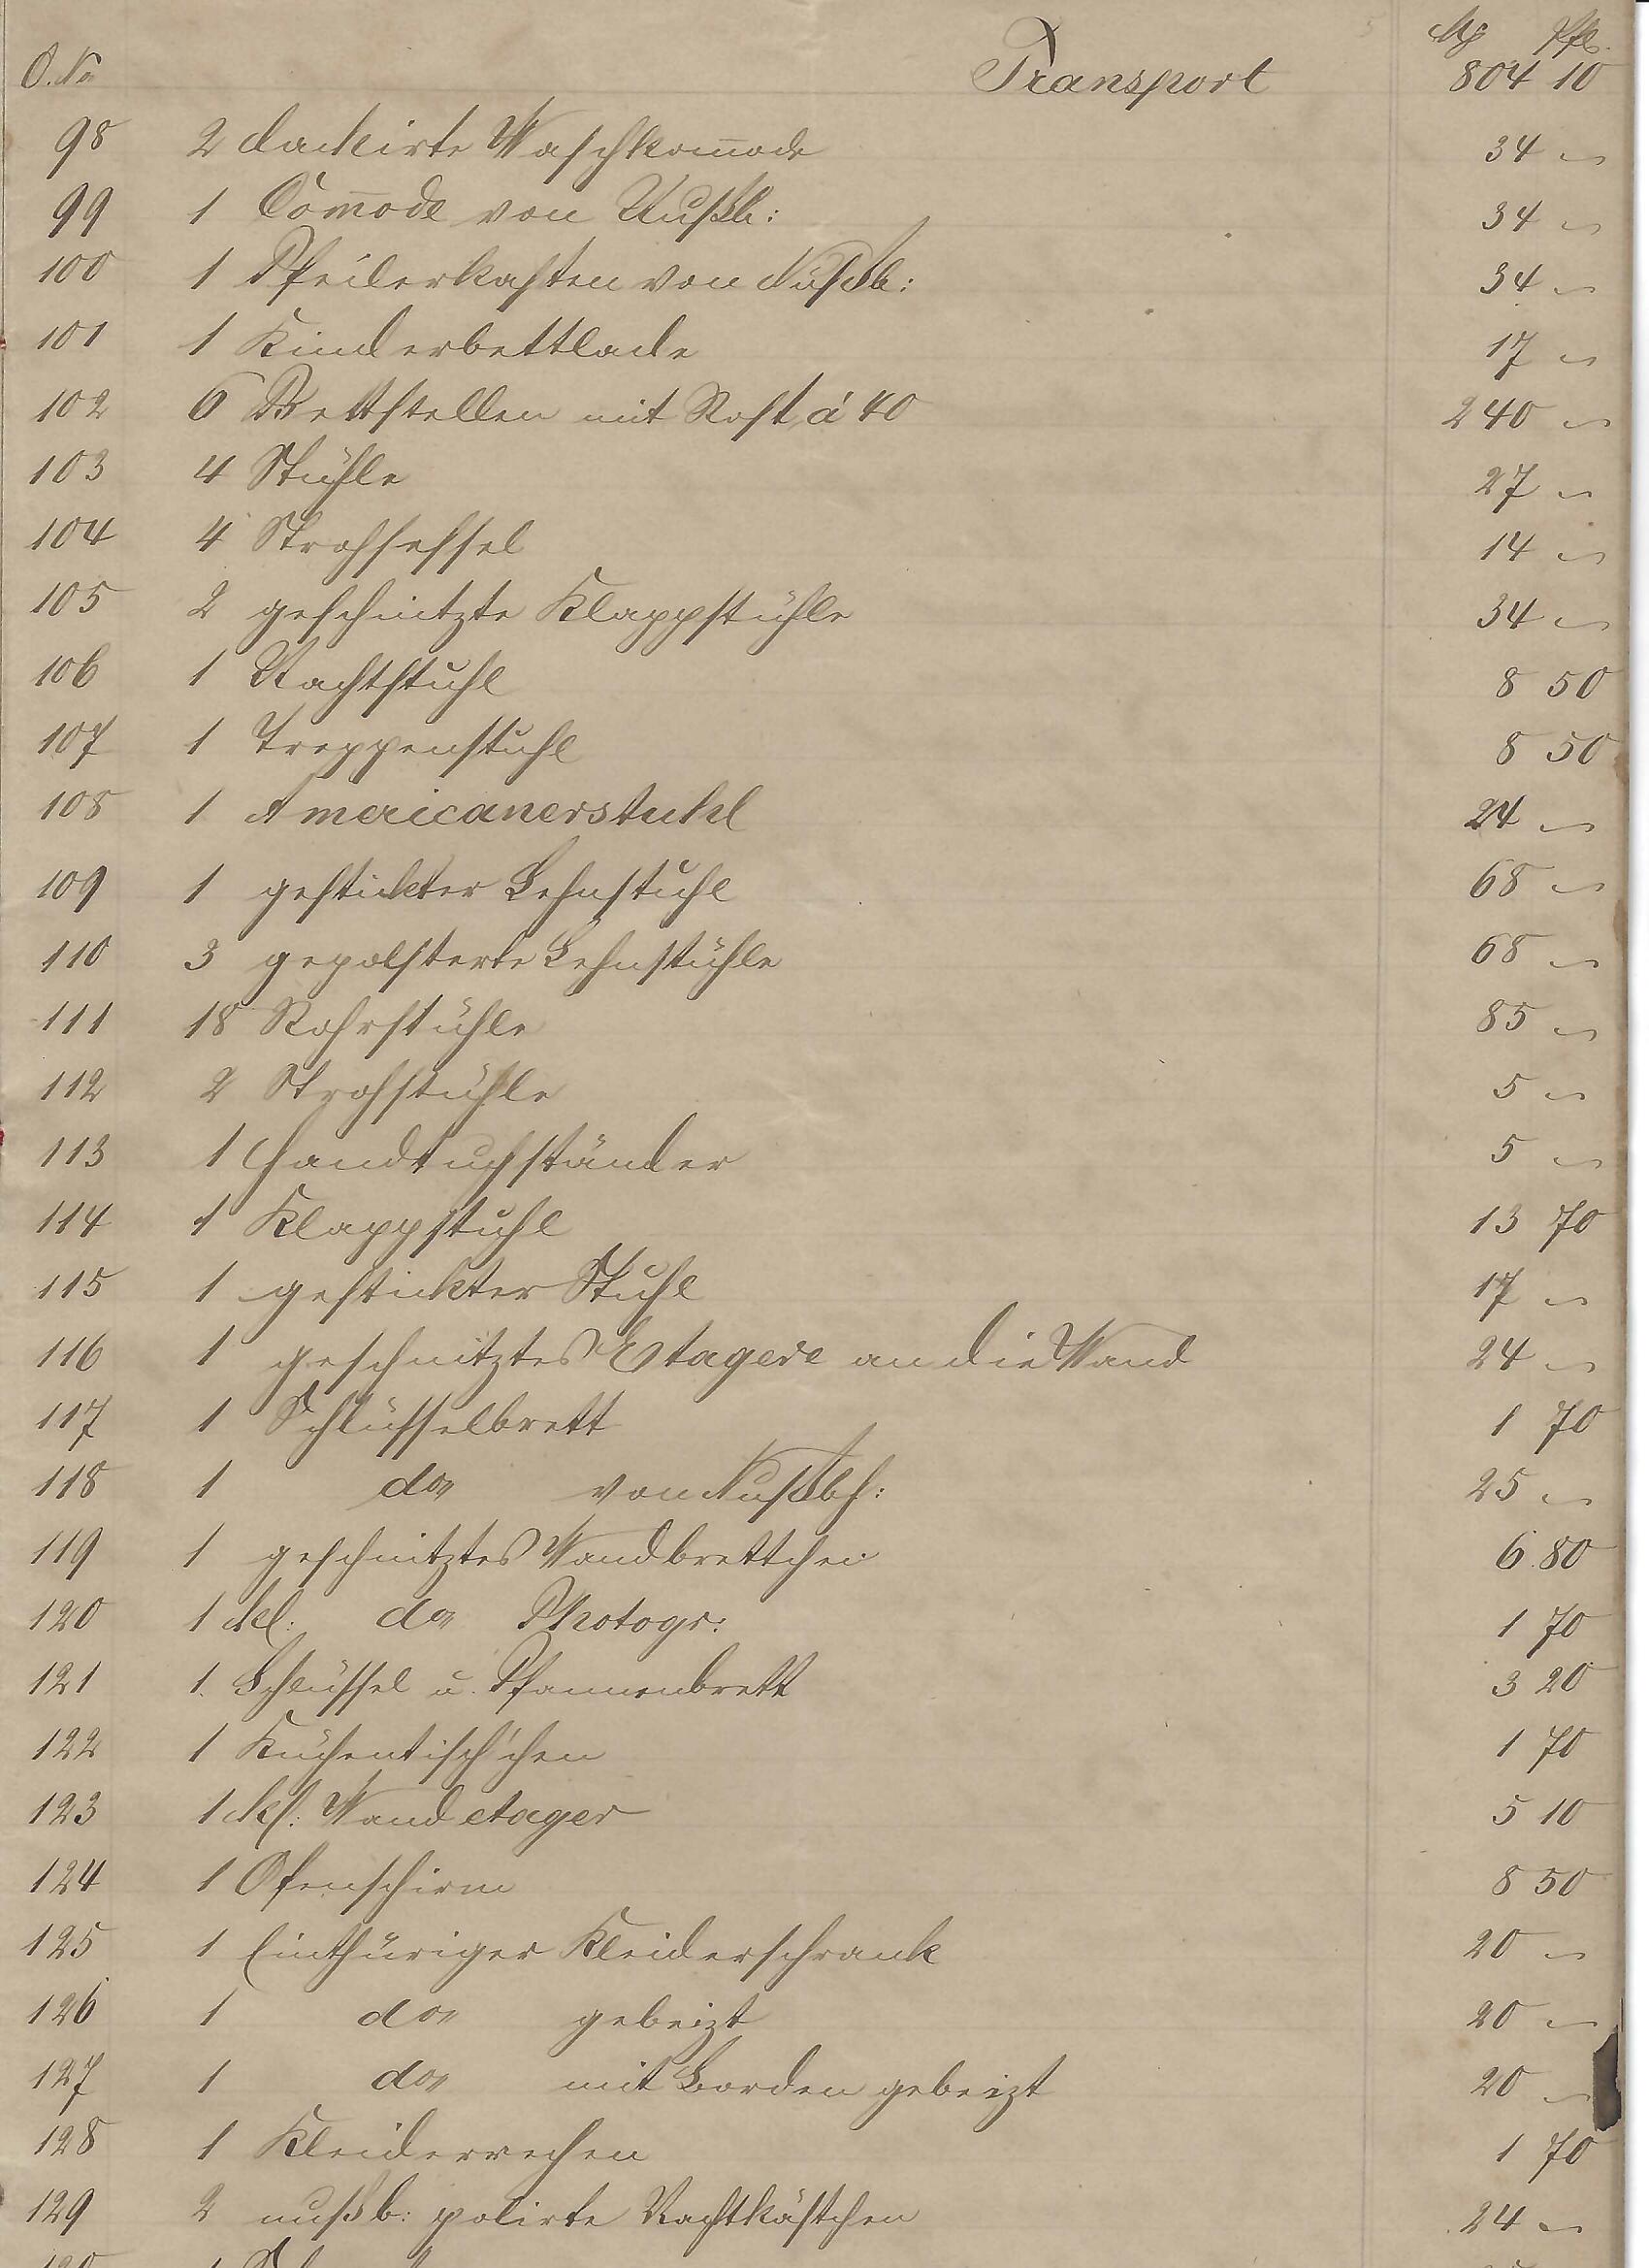 M Pfe.
O. No Transport 804 10
98 2 lackirte Waschkom̄ode 34 —
99 1 Com̄ode von Nußb: 34 —
100 1 Pfeilerkasten von Nußb: 34 —
101 1 Kinderbettlade 17 —
102 6 Bettstellen mit Rost á 40 240 —
103 4 Stühle 27 —
104 4 Strohsessel 14 —
105 2 geschnitzte Klappstühle 34 —
106 1 Nachtstuhl 8 50
107 1 Treppenstuhl 8 50
108 1 Americanerstuhl 24 —
109 1 gestickter Lehnstuhl 68 —
110 3 gepolsterte Lehnstühle 68 —
111 18 Rohrstühle 85 —
112 2 Strohstühle 5 —
113 1 Handtuchständer 5 —
114 1 Klappstuhl 13 70
115 1 gestickter Stuhl 17 —
116 1 geschnitztes Etagere an die Wand 24 —
117 1 Schlüsselbrett 1 70
118 1 do von Nußbh: 25 —
119 1 geschnitztes Wandbrettchen 6 80
120 1 kl: do Photogr: 1 70
121 1. Schlüssel u. Pfannenbrett 3 20
122 1 Küchentisch'chen 1 70
123 1 kl: Wandetager 5 10
124 1 Ofenschirm 8 50
125 1 Einthüriger Kleiderschrank 20 —
126 1 do gebeizt 20 —
127 1 do mit Borden gebeizt 20 —
128 1 Kleiderrechen 1 70
129 2 nußb: polirte Nachtkästchen 24 —